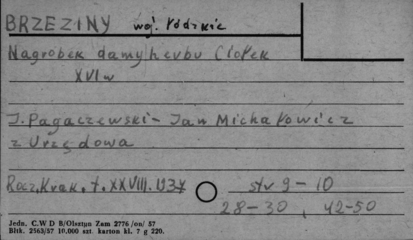 BRZEZINY woj. łódzkie
Nagrobek damy herbu Ciołek
XVI w
J. Pagaczewski - Jan Michałowicz
z Urzędowa
Rocz. Krak. t. XXVIII. 1937 str 9 - 10
28-30, 42-50
Jedn. C.W D B/Olsztyn Zam 2776 /on/ 57
Bltk. 2563/57 10.000 szt. karton kl. 7 g 220.